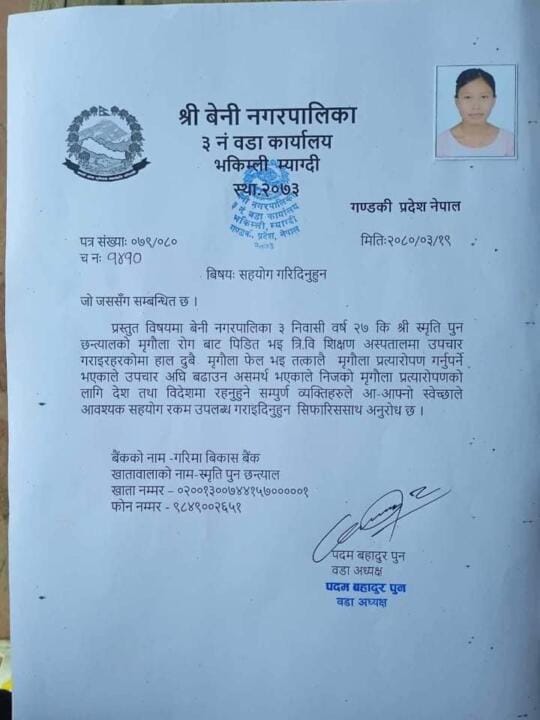 श्री बेनी नगरपालिका
३ नं वडा कार्यालय
भकिम्ली म्याग्दी
स्था.२०७३
बेनी नगरपालिका
३ नं. वडा कार्यालय
भकिम्ली, म्याग्दी
गण्डकी, प्रदेश, नेपाल
२०७३
गण्डकी प्रदेश नेपाल
पत्र संख्याः ०७९/०८०
मितिः२०८०/०३/१९
च नः १४९०
बिषयः सहयोग गरिदिनुहुन
जो जससँग सम्बन्धित छ ।
प्रस्तुत विषयमा बेनी नगरपालिका ३ निवासी वर्ष २७ कि श्री स्मृति पुन
छन्त्यालको मृगौला रोग बाट पिडित भइ त्रि.वि शिक्षण अस्पतालमा उपचार
गराइरहरकोमा हाल दुबै मृगौला फेल भइ तत्कालै मृगौला प्रत्यारोपण गर्नुपर्ने
भएकाले उपचार अघि बढाउन असमर्थ भएकाले निजको मृगौला प्रत्यारोपणको
लागि देश तथा विदेशमा रहनुहुने सम्पुर्ण व्यक्तिहरुले आ-आफ्नो स्वेच्छाले
आवश्यक सहयोग रकम उपलब्ध गराइदिनुहुन सिफारिससाथ अनुरोध छ ।
बैंकको नाम -गरिमा बिकास बैंक
खातावालाको नाम-स्मृति पुन छन्त्याल
खाता नम्मर – ०२००१३००७४४१५७००००१
फोन नम्मर - ९८४९००२६५१
पदम बहादुर पुन
वडा अध्यक्ष
पदम बहादुर पुन
वडा अध्यक्ष